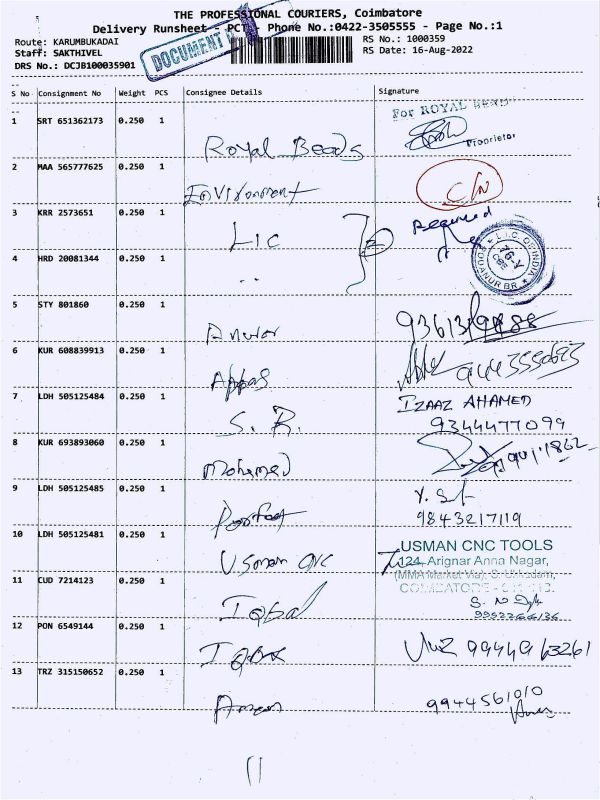 THE PROFESSIONAL COURIERS, Coimbatore
Delivery Runsheet - PCT - Phone No.:0422-3505555 - Page No.:1
Route: KARUMBUKADAI
RS No.: 1000359
Staff: SAKTHIVEL
RS Date: 16-Aug-2022
DRS No.: DCJB100035901
DOCUMENT
S No Consignment No Weight PCS Consignee Details Signature
For ROYAL BEADS
1 SRT 651362173 0.250 1
Royal Beads Proprietor
2 MAA 565777625 0.250 1
Environment C/N
3 KRR 2573651 0.250 1
LIC Received
L.I.C. OF INDIA
4 HRD 20081344 0.250 1
5 STY 801860 0.250 1
Anwar
6 KUR 608839913 0.250 1
Appas
7 LDH 505125484 0.250 1 IZAAZ AHAMED
S. R. 9344477099
8 KUR 693893060 0.250 1
Mohamed
9 LDH 505125485 0.250 1
9843217119
10 LDH 505125481 0.250 1 USMAN CNC TOOLS
Usman CNC 124, Arignar Anna Nagar,
11 CUD 7214123 0.250 1 (MMA Market Via), S.
Iqbal
12 PON 6549144 0.250 1
13 TRZ 315150652 0.250 1
9944561010